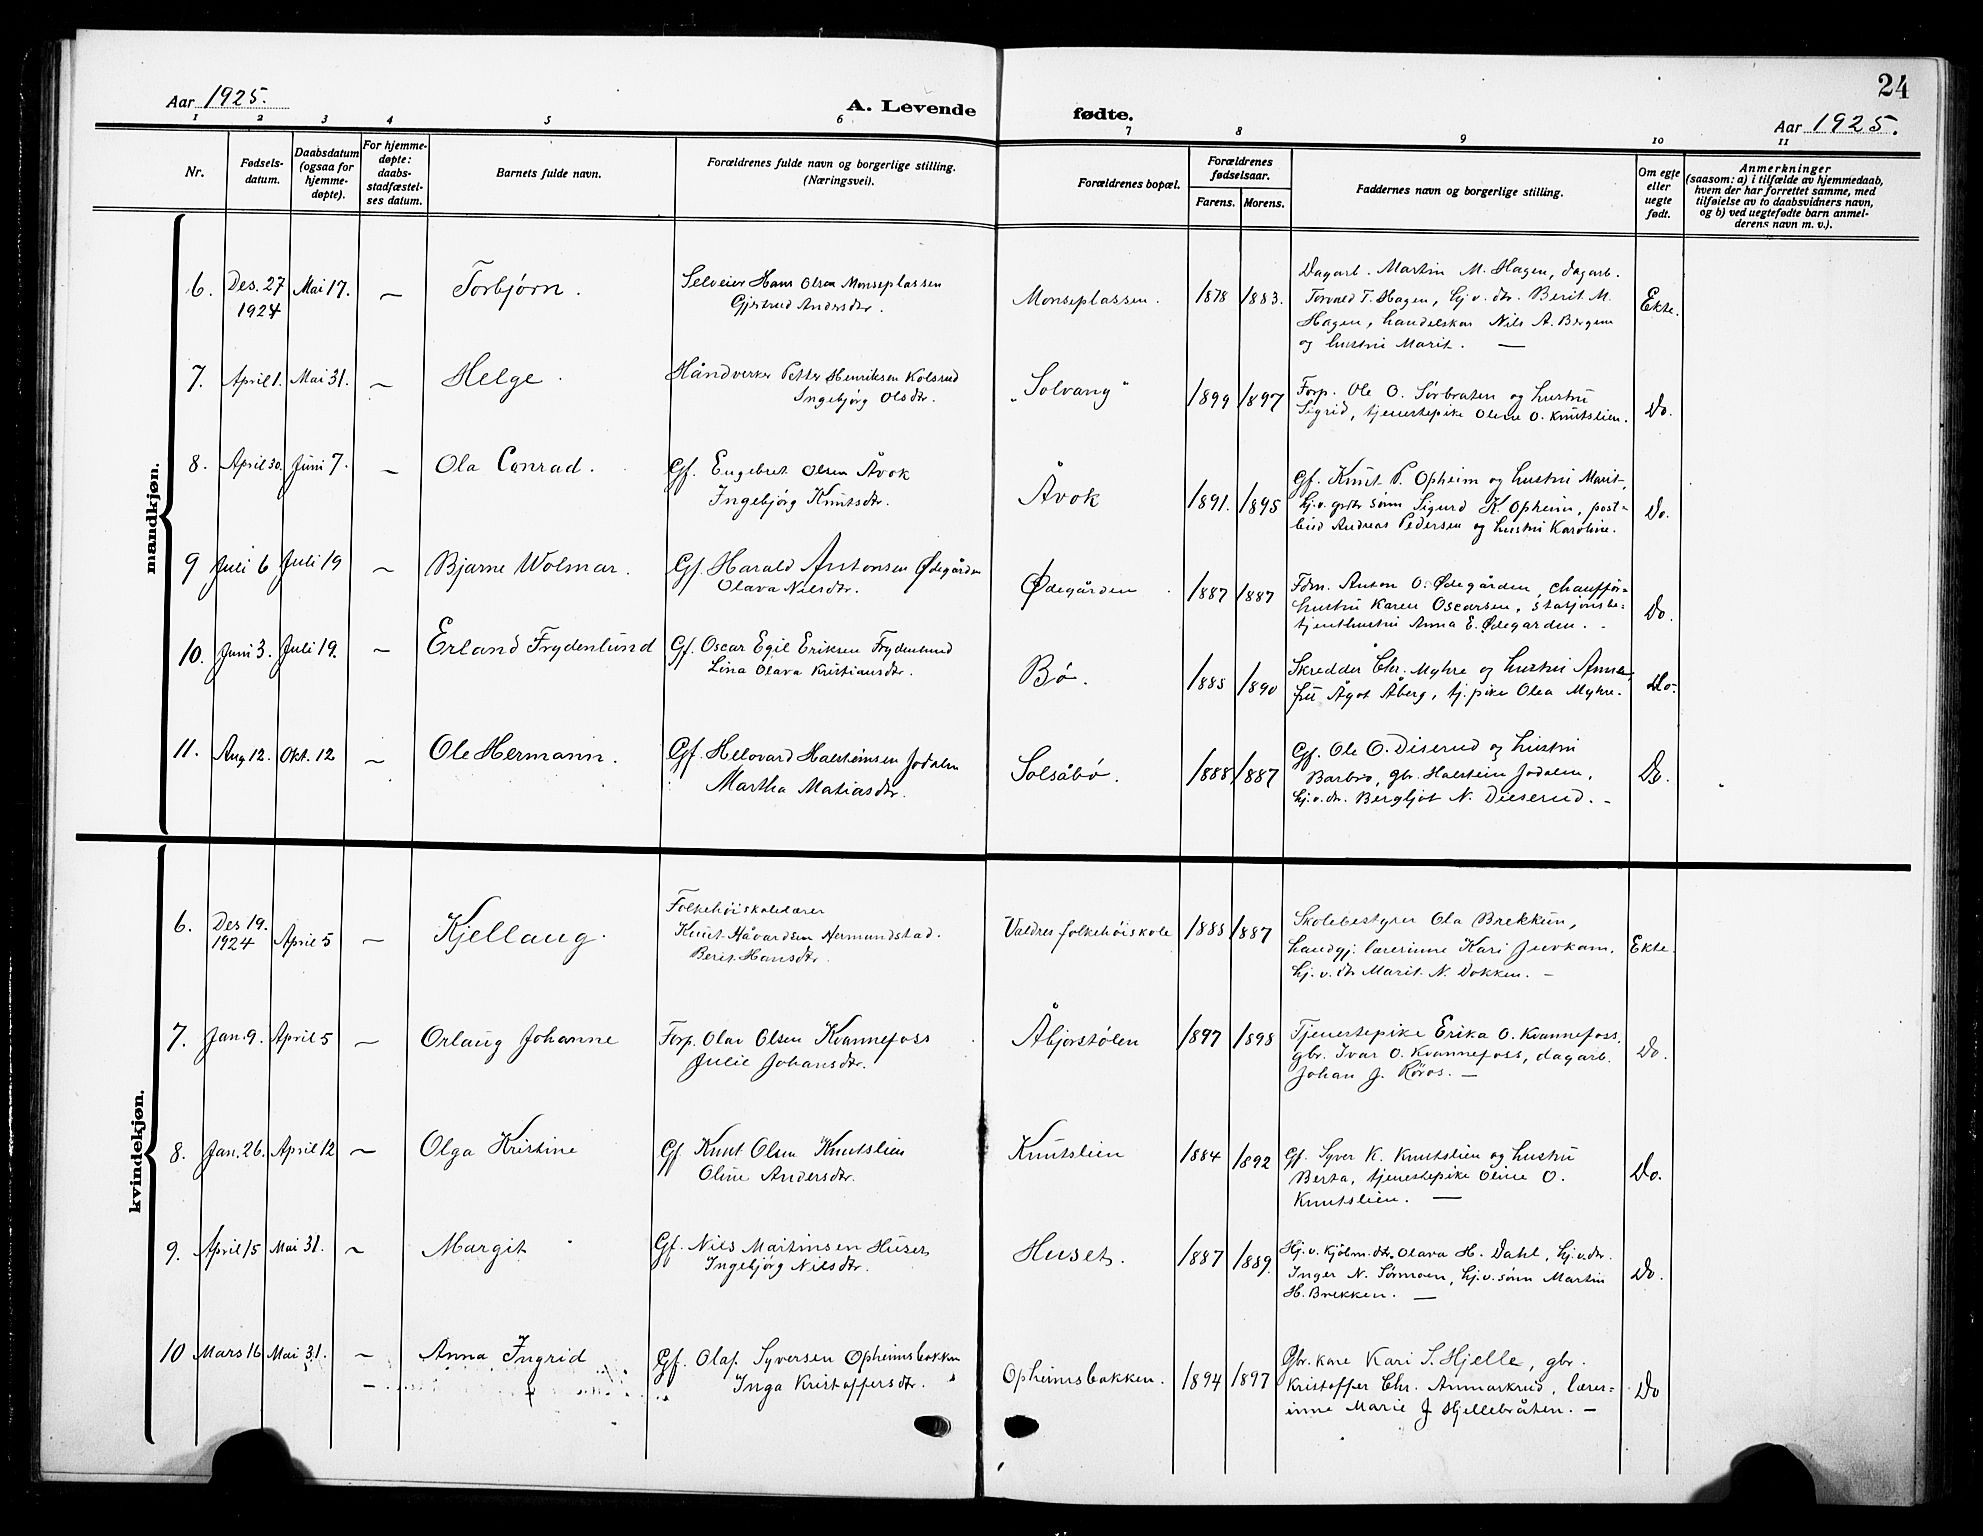 24
Aar 1925.
A. Levende
fødte.
Aar 1925.
1 2 3 4 5 6 7 8 9 10 11
Nr.
Fødsels-
datum.
Daabsdatum
(ogsaa for
hjemme-
døpte).
For hjemme-
døpte:
daabs-
stadfæstel-
ses datum.
Barnets fulde navn.
Forældrenes fulde navn og borgerlige stilling.
(Næringsvei).
Forældrenes bopæl.
Forældrenes
fødselsaar.
Farens. Morens.
Faddernes navn og borgerlige stilling.
Om egte
eller
uegte
født.
Anmerkninger
(saasom: a) i tilfælde av hjemmedaab,
hvem der har forrettet samme, med
tilføielse av to daabsvidners navn,
og b) ved uegtefødte barn anmel-
derens navn m. v.).
mandkjøn.
6. Des. 27 1924 Mai 17. ~ Torbjørn.
Selveier Hans Olsen Monseplassen
Gjertrud Andersdtr.
Monseplassen. 1878 1883.
Dagarb. Martin M. Hagen, dagarb.
Torvald T. Hagen, hj.v. dtr. Berit M.
Hagen, handelskar Nils A. Bergene
og hustru Marit. —
Ekte.
7. April 1. Mai 31. ~ Helge.
Håndverker Petter Henriksen Kolsrud
Ingebjørg Olsdtr.
"Solvang" 1899 1897
Forp. Ole O. Sørbraten og hustru
Sigrid, tjenestepike Oline O. Knutslien.
Do.
8. April 30. Juni 7. ~ Ola Conrad.
Gf. Engebret Olsen Åvok
Ingebjørg Knutsdtr.
Åvok 1891. 1895
Gf. Knut P. Opheim og hustru Marit,
hj.v. gbr. sønn Sigurd K. Opheim, post-
bud Andreas Pedersen og hustru Karoline.
Do.
9 Juli 6 Juli 19 ~ Bjarne Wolmar.
Gf. Harald Antonsen Ødegården
Olava Nilsdtr.
Ødegården 1887 1887
Fdrn. Anton O. Ødegården, chauffør-
hustru Karen Oscarsen, stasjonsbe-
tjenthustru Anna E. Ødegarden.
Do.
10. Juni 3. Juli 19. ~ Erland Frydenlund
Gf. Oscar Egil Eriksen Frydenlund
Lina Olava Kristiansdtr.
Bø. 1885 1890
Skredder Chr. Myhre og hustru Anna,
fru Ågot Åberg, tj.pike Olea Myhre.
Do.
11. Aug 12. Okt. 12 ~ Ole Hermann.
Gf. Helovard Halsteinsen Jodalen
Martha Matiasdtr.
Solsåbø. 1888 1887
Gf. Ole O. Diserud og hustru
Barbro, gbr. Halstein Jodalen,
hj.v. dtr. Bergljot N. Dieserud. -
Do.
kvindekjøn.
6. Des 19. 1924 April 5 ~ Kjellaug.
Folkehøiskolelærer
Knut Håvardsen Nermundstad.
Berit Hansdtr.
Valdres folkehøiskole 1885 1887
Skolebestyrer Ola Brekkun,
handgj. lærerinne Kari Juvkam.
hj.v. dtr Marit N. Dokken. -
Ekte.
7. Jan. 9. April 5 ~ Orlaug Johanne
Forp. Olav Olsen Kvannefoss
Julie Johansdtr.
Åbjorstølen 1897 1898
Tjenestepike Erika O. Kvannefoss,
gbr. Ivar O. Kvannefoss, dagarb.
Johan J. Røros. -
Do.
8. Jan. 26. April 12 ~ Olga Kristine
Gf. Knut Olsen Knutslien
Oline Andersdtr.
Knutslien 1884 1892
Gf. Syver K. Knutslien og hustru
Berta, tjenestepike Oline O.
Knutslien. —
Do.
9. April 15 Mai 31. ~ Margit
Gf. Nils Martinsen Huset
Ingebjørg Nilsdtr.
Huset. 1887 1889
Hj.v. kjølm. dtr. Olava H. Dahl, hj.v.dtr.
Inger N. Sørmoen, hj.v. sønn Martin
H. Brekken. —
Do.
10 Mars 16 Mai 31. ~ Anna Ingrid
Gf. Olaf Syversen Opheimsbakken
Inga Kristoffersdtr.
Opheimsbakken. 1894 1897
Gbr. kone Kari S. Hjelle, gbr.
Kristoffer Chr. Anmarkrud, lærer-
inne Marie J Hjellebråten. -
Do